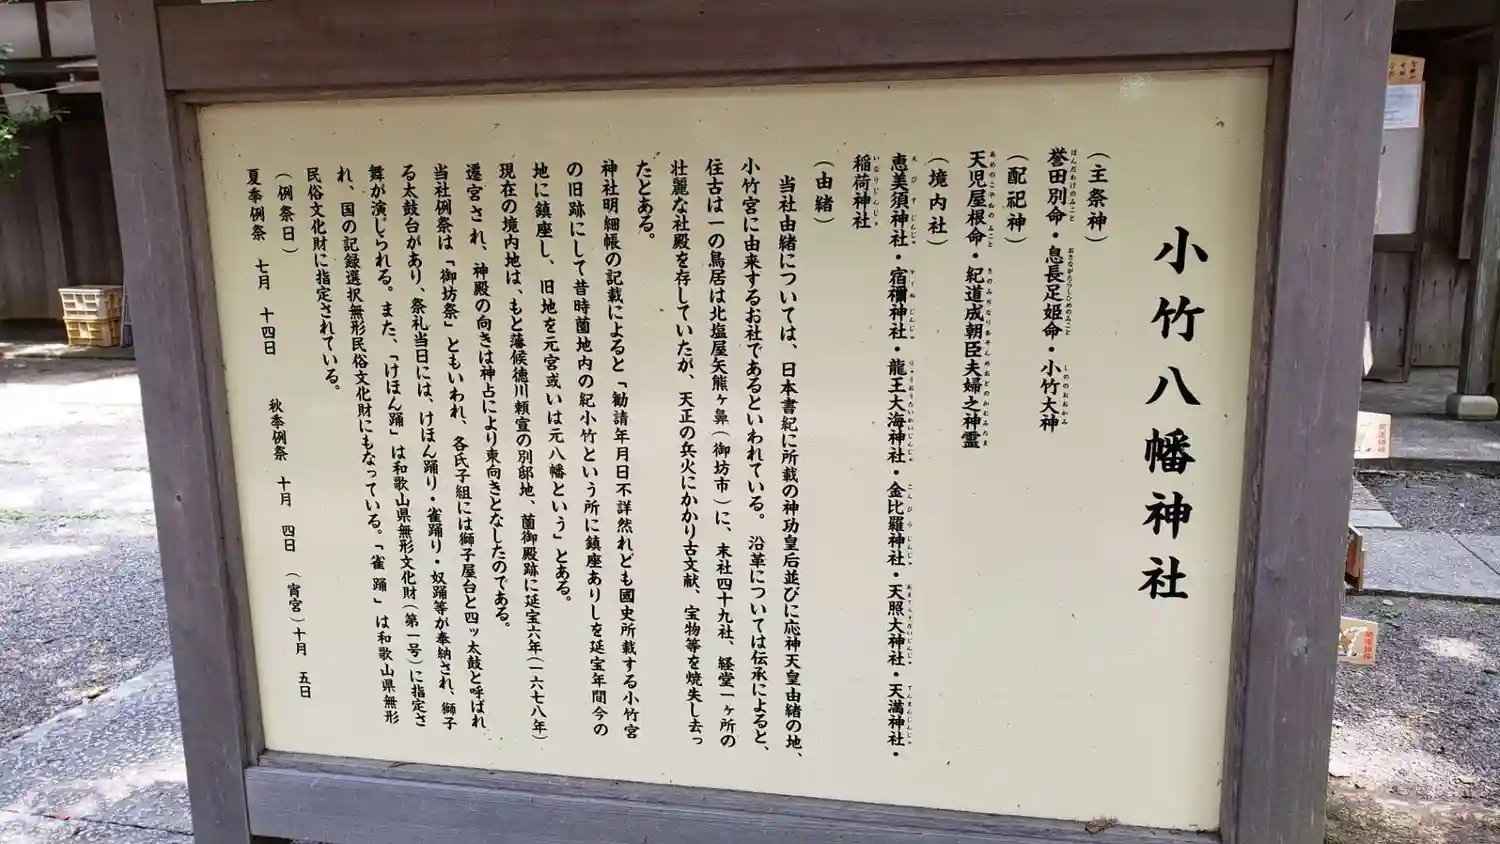 小竹八幡神社
（主祭神）
誉田別命・息長足姫命・小竹大神
ほんだわけのみこと おきながたらしひめのみこと しののおおかみ
（配祀神）
天児屋根命・紀道成朝臣夫婦之神霊
あめのこやねのみこと きのみちなりあそんめおとのかむみたま
（境内社）
恵美須神社・宿禰神社・龍王大海神社・金比羅神社・天照大神社・天満神社・
えびすじんじゃ すくねじんじゃ りゅうおうたいかいじんじゃ こんぴらじんじゃ あまてらすだいじんじゃ てんまんじんじゃ
稲荷神社
いなりじんじゃ
（由緒）
当社由緒については、日本書紀に所載の神功皇后並びに応神天皇由緒の地、
小竹宮に由来するお社であるといわれている。沿革については伝承によると、
住古は一の鳥居は北塩屋矢熊ヶ鼻（御坊市）に、末社四十九社、経堂一ヶ所の
壮麗な社殿を存していたが、天正の兵火にかかり古文献、宝物等を焼失し去っ
たとある。
神社明細帳の記載によると「勧請年月日不詳然れども國史所載する小竹宮
の旧跡にして昔時薗地内の紀小竹という所に鎮座ありしを延宝年間今の
地に鎮座し、旧地を元宮或いは元八幡という」とある。
現在の境内地は、もと藩候徳川頼宣の別邸地、薗御殿跡に延宝六年（一六七八年）
遷宮され、神殿の向きは神占により東向きとなしたのである。
当社例祭は「御坊祭」ともいわれ、各氏子組には獅子屋台と四ッ太鼓と呼ばれ
る太鼓台があり、祭礼当日には、けほん踊り・雀踊り・奴踊等が奉納され、獅子
舞が演じられる。また、「けほん踊」は和歌山県無形文化財（第一号）に指定さ
れ、国の記録選択無形民俗文化財にもなっている。「雀踊」は和歌山県無形
民俗文化財に指定されている。
（例祭日）
夏季例祭 七月 十四日 秋季例祭 十月 四日 （宵宮）十月 五日